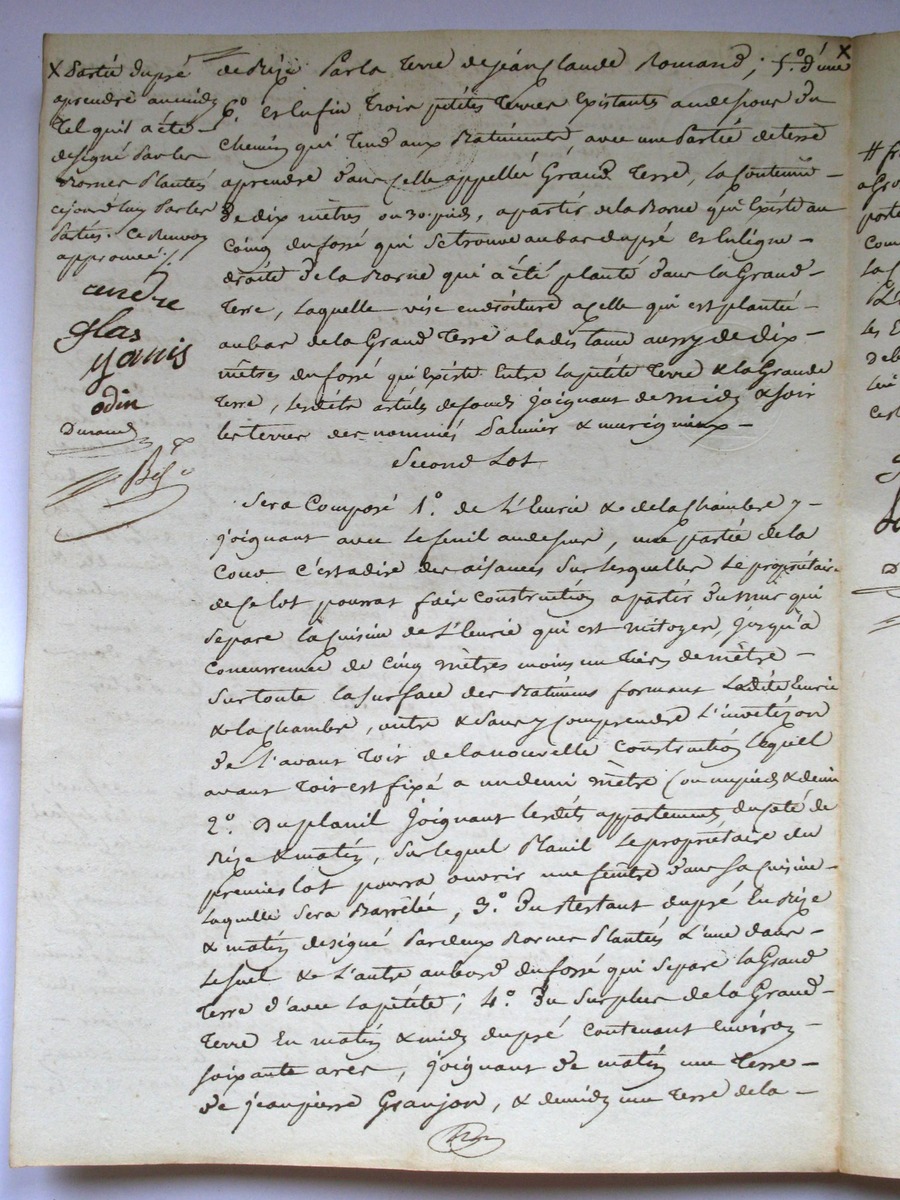 X Partie du pré
a prendre au midy
tel quil a été
designé par les
Bornes plantées
cejourdhuy par les
Parties. ce Renvoy
approuvé./.
andre
glas
yanis
odin
Durand
de Bize par la terre de jean Claude Romand ; 5.º d'une X
6.º et Enfin trois petites terres Existants au dessous du
chemin qui tend aux Batiments, avec une Partie de terre
aprendre dans celle appellée Grand Terre, la Contenue
de dix mètres ou 30. pieds, a partir de la Borne qui Existe au
Coing du fossé qui se trouve au bas du pré et En ligne
droite de la Borne qui a été planté dans la Grand
Terre, Laquelle vise en droiture a celle qui est plantée
au bas de la Grand Terre a la distance aussy de dix
mètres du fossé qui Existe Entre la petite Terre & la Grande
Terre, Lesdits articles de fonds joignant de midy & soir
les terres des nommés
Second Lot
Sera Composé 1.º de L'Ecurie & de la Chambre y
joignant avec le fenil au dessus, une partie de la
Cour c'est a dire des aisances sur lesquelles Le propriétaire
de ce lot pourra faire Construction a partir du mur qui
Separe la Cuisine de L'Ecurie qui est mitoyen, jusqu'à
Concurrence de Cinq mètres moins un tiers de mètre
Sur toute la surface des Batimens formant Ladite Ecurie
& la Chambre, outre & sans y Comprendre L'
de L'avant toit de la nouvelle Construction Lequel
avant toit est fixé a un demi mètre (ou un pied & demi
2.º Du planil joignant lesdits appartements, du coté de
Bize & matin, sur lequel Planil Le propriétaire du
premier lot pourra ouvrir une fenêtre dans sa Cuisine
Laquelle sera Barrêtée, 3.º Du Restant du pré En Bize
& matin designé par deux Bornes Plantées L'une dans
& L'autre au bord du fossé qui separe la Grand
Terre d'avec la petite ; 4.º Du surplus de la Grand
Terre En matin & midy du pré Contenant Environ
soixante ares, joignant de matin une Terre
de jean pierre Granjon, & de midy une Terre de la